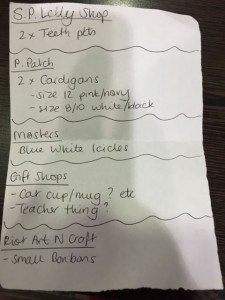 S.P. Lolly Shop
2 x Teeth pkts
P. Patch
2 x Cardigans
- size 12 pink/navy
- size 8/10 white/black
Masters
Blue White Icicles
Gift Shops
- Car cup/mug? etc
- Teacher thing?
Riot Art N Craft
- Small Bonbons